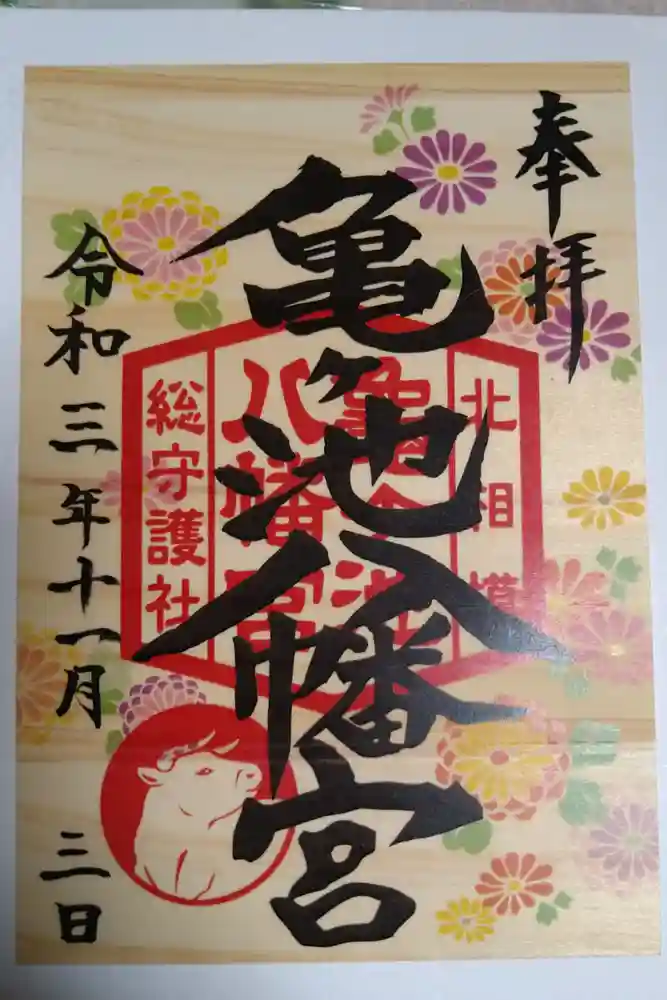 奉拝
北相模
亀ヶ池
八幡宮
総守護社
亀ヶ池八幡宮
令和三年十一月三日